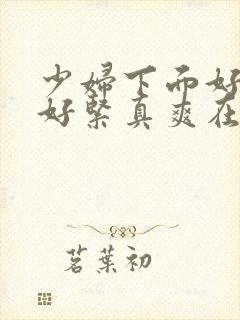 少婦下面好
好緊真爽在
茗葉初